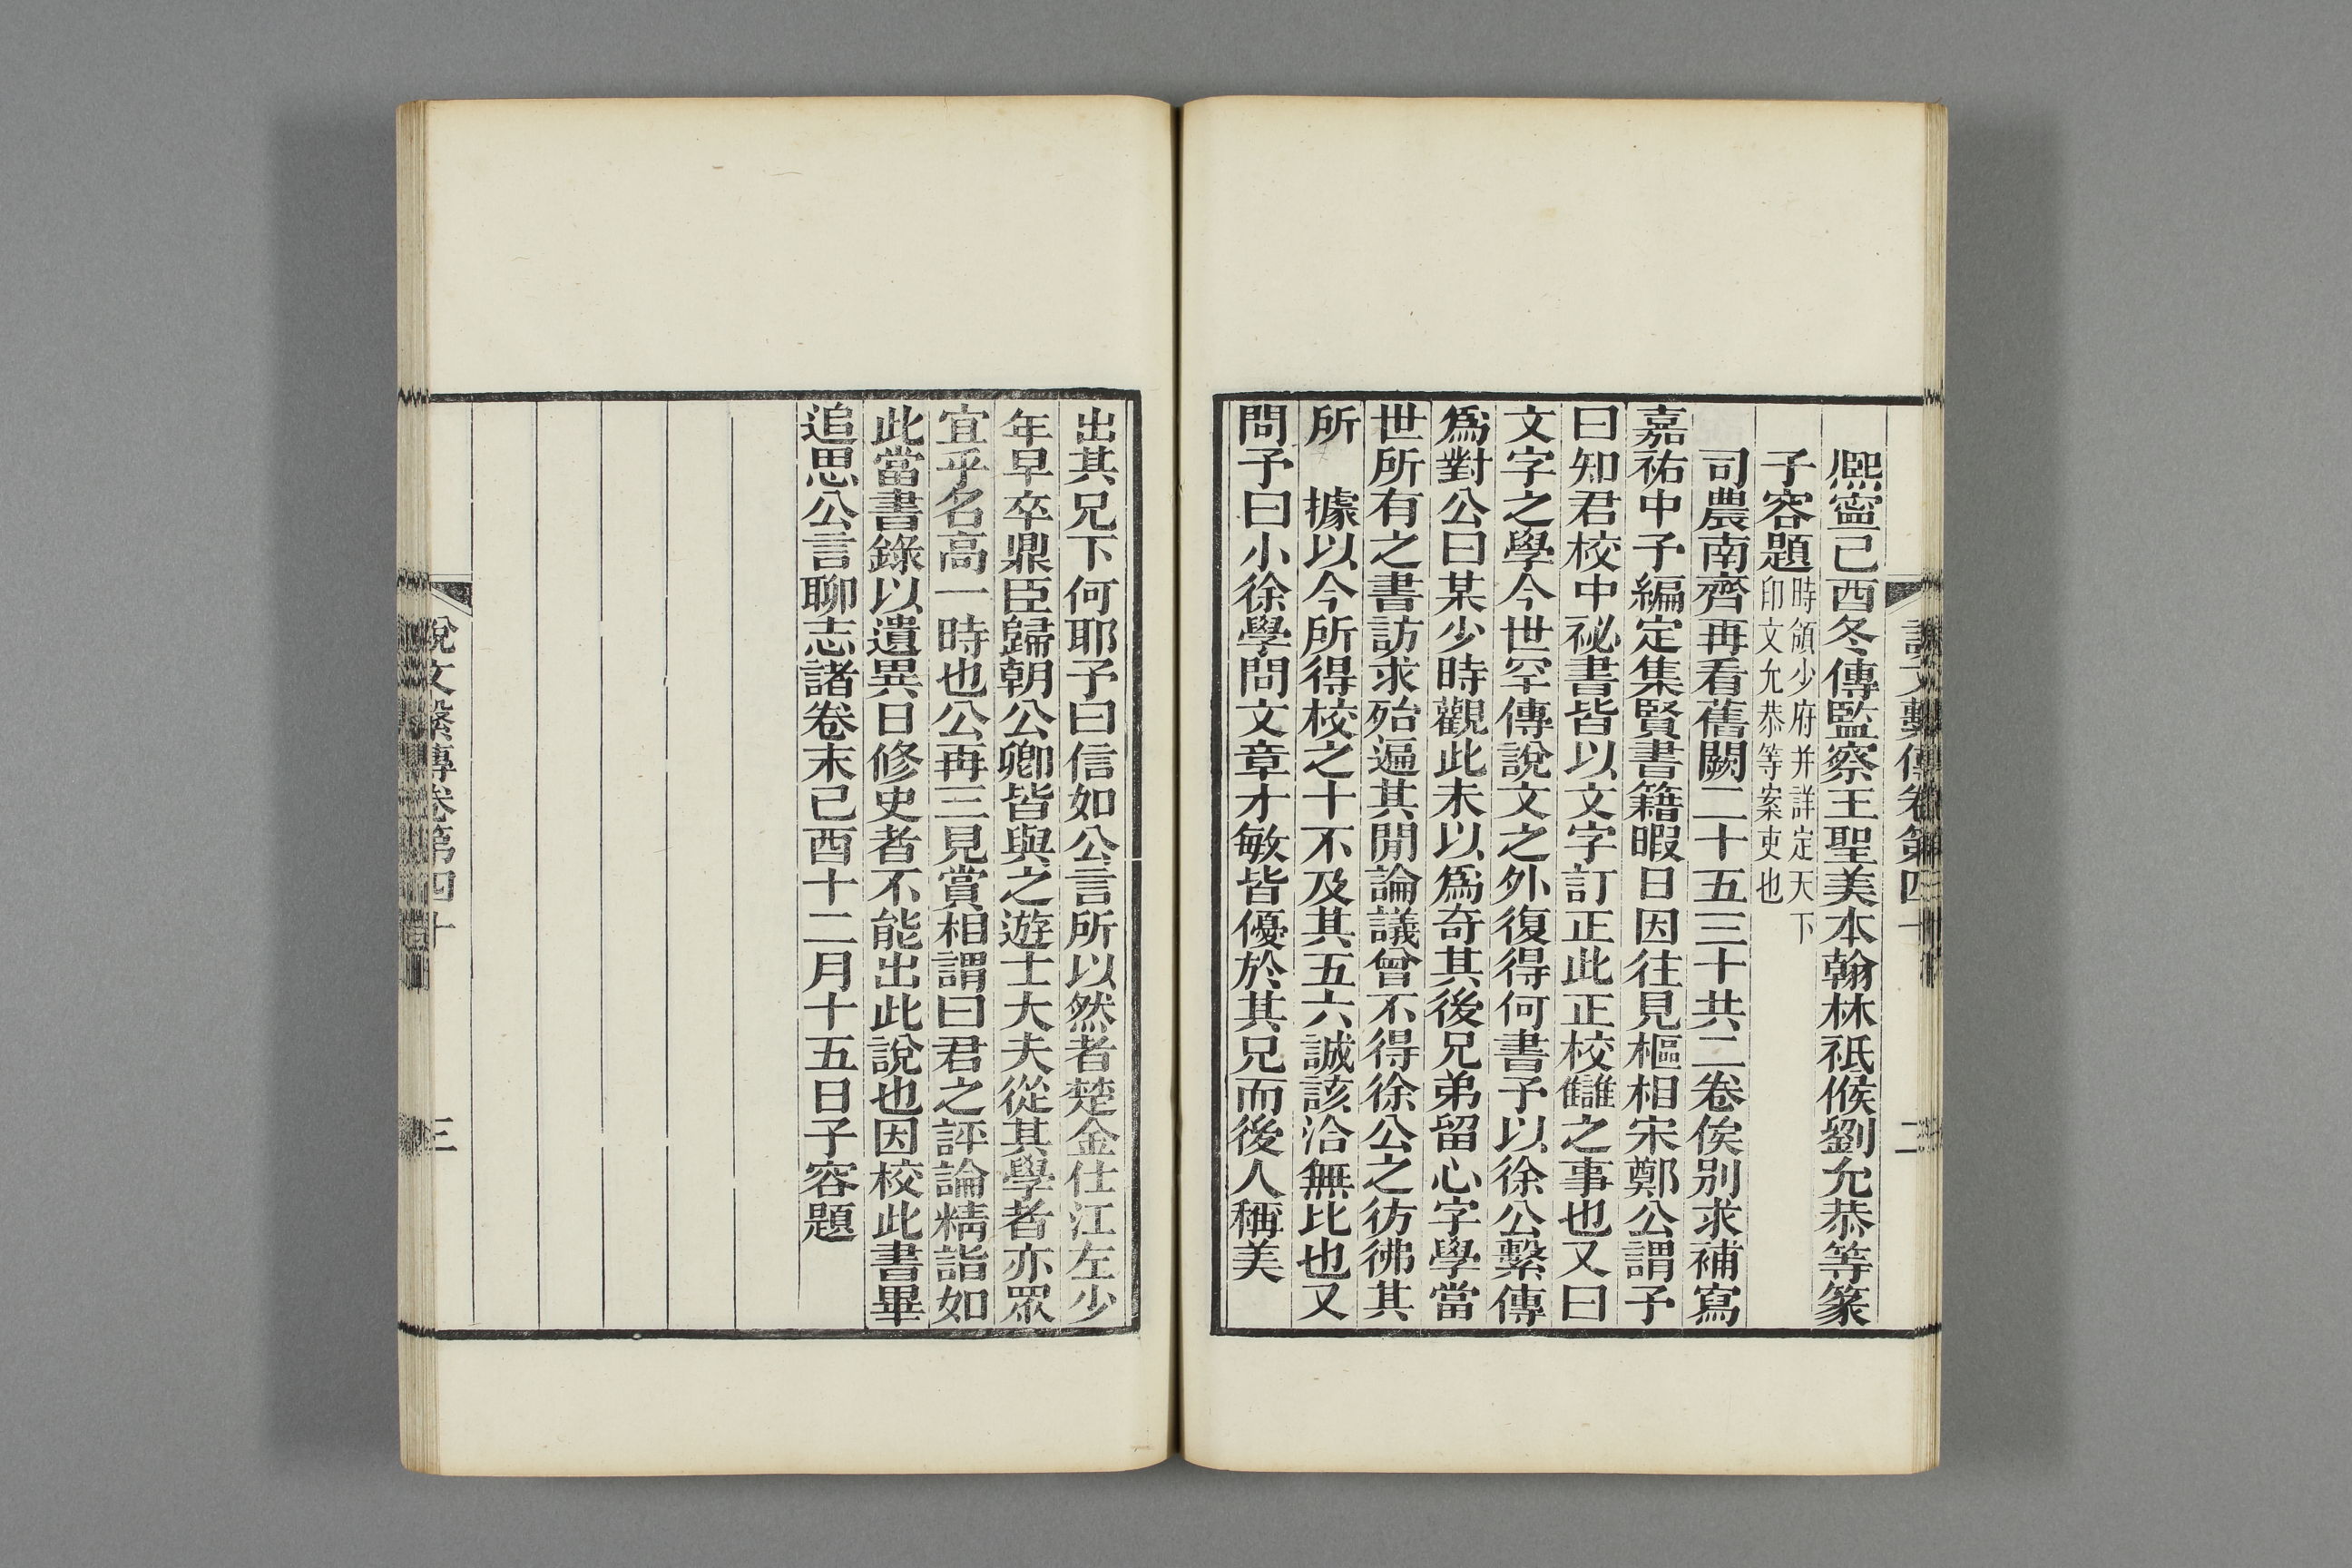 說文繫傳卷第四十
二
熈寧己酉冬傳監察王聖美本翰林祗候劉允恭等篆
子容題時領少府并詳定天下
印文允恭等案吏也
司農南齊再看舊闕二十五三十共二卷俟别求補寫
嘉祐中予編定集賢書籍暇日因往見樞相宋鄭公謂予
曰知君校中祕書皆以文字訂正此正校讎之事也又曰
文字之學今世罕傳說文之外復得何書予以徐公繫傳
爲對公曰某少時觀此未以爲奇其後兄弟留心字學當
世所有之書訪求殆遍其閒論議曾不得徐公之彷彿其
所　據以今所得校之十不及其五六誠該洽無比也又
問予曰小徐學問文章才敏皆優於其兄而後人稱美
出其兄下何耶予曰信如公言所以然者楚金仕江左少
年早卒鼎臣歸朝公卿皆與之遊士大夫從其學者亦眾
宜乎名高一時也公再三見賞相謂曰君之評論精詣如
此當書錄以遺異日修史者不能出此說也因校此書畢
追思公言聊志諸卷末己酉十二月十五日子容題
說文繫傳卷第四十
三